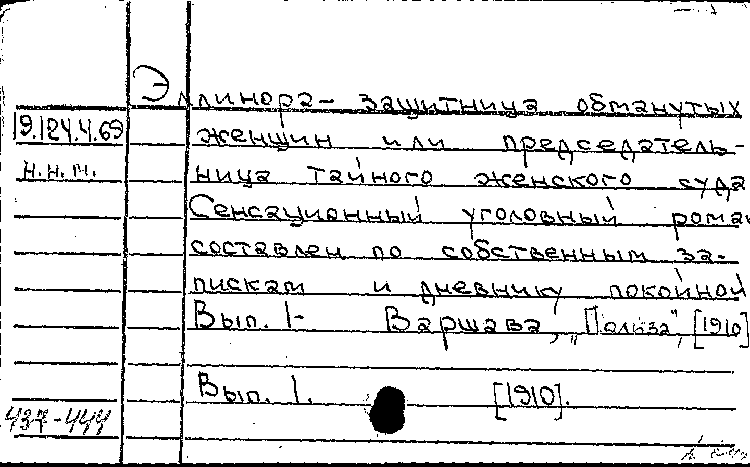 Эллинора - защитница обманутых
19.124.4.69 женщин или председатель-
н.н.м. ница тайного женского суда
Сенсационный уголовный роман
составлен по собственным за-
пискам и дневнику покойной
Вып. 1- Варшава, „Польза", [1910]
Вып. 1. [1910].
437-444